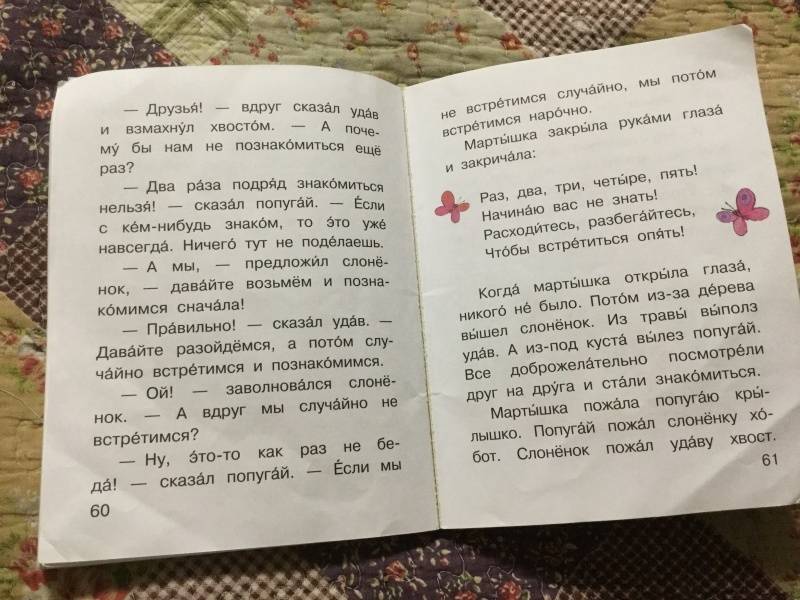 — Друзья́! — вдруг сказа́л уда́в
и взмахну́л хвосто́м. — А поче-
му́ бы нам не познако́миться ещё
раз?
— Два ра́за подря́д знако́миться
нельзя́! — сказа́л попуга́й. — Е́сли
с ке́м-нибудь знако́м, то э́то уже́
навсегда́. Ничего́ тут не поде́лаешь.
— А мы, — предложи́л слонё-
нок, — дава́йте возьмём и позна-
ко́мимся снача́ла!
— Пра́вильно! — сказа́л уда́в. —
Дава́йте разойдёмся, а пото́м слу-
ча́йно встре́тимся и познако́мимся.
— Ой! — заволнова́лся слонё-
нок. — А вдруг мы случа́йно не
встре́тимся?
— Ну, э́то-то как раз не бе-
да́! — сказа́л попуга́й. — Е́сли мы
60
не встре́тимся случа́йно, мы пото́м
встре́тимся наро́чно.
Марты́шка закры́ла рука́ми глаза́
и закрича́ла:
Раз, два, три, четы́ре, пять!
Начина́ю вас не знать!
Расходи́тесь, разбега́йтесь,
Что́бы встре́титься опя́ть!
Когда́ марты́шка откры́ла глаза́,
никого́ не́ было. Пото́м из-за де́рева
вы́шел слонёнок. Из травы́ вы́полз
уда́в. А из-под куста́ вы́лез попуга́й.
Все доброжела́тельно посмотре́ли
друг на дру́га и ста́ли знако́миться.
Марты́шка пожа́ла попуга́ю кры́-
лышко. Попуга́й пожа́л слонёнку хо́-
бот. Слонёнок пожа́л уда́ву хвост.
61